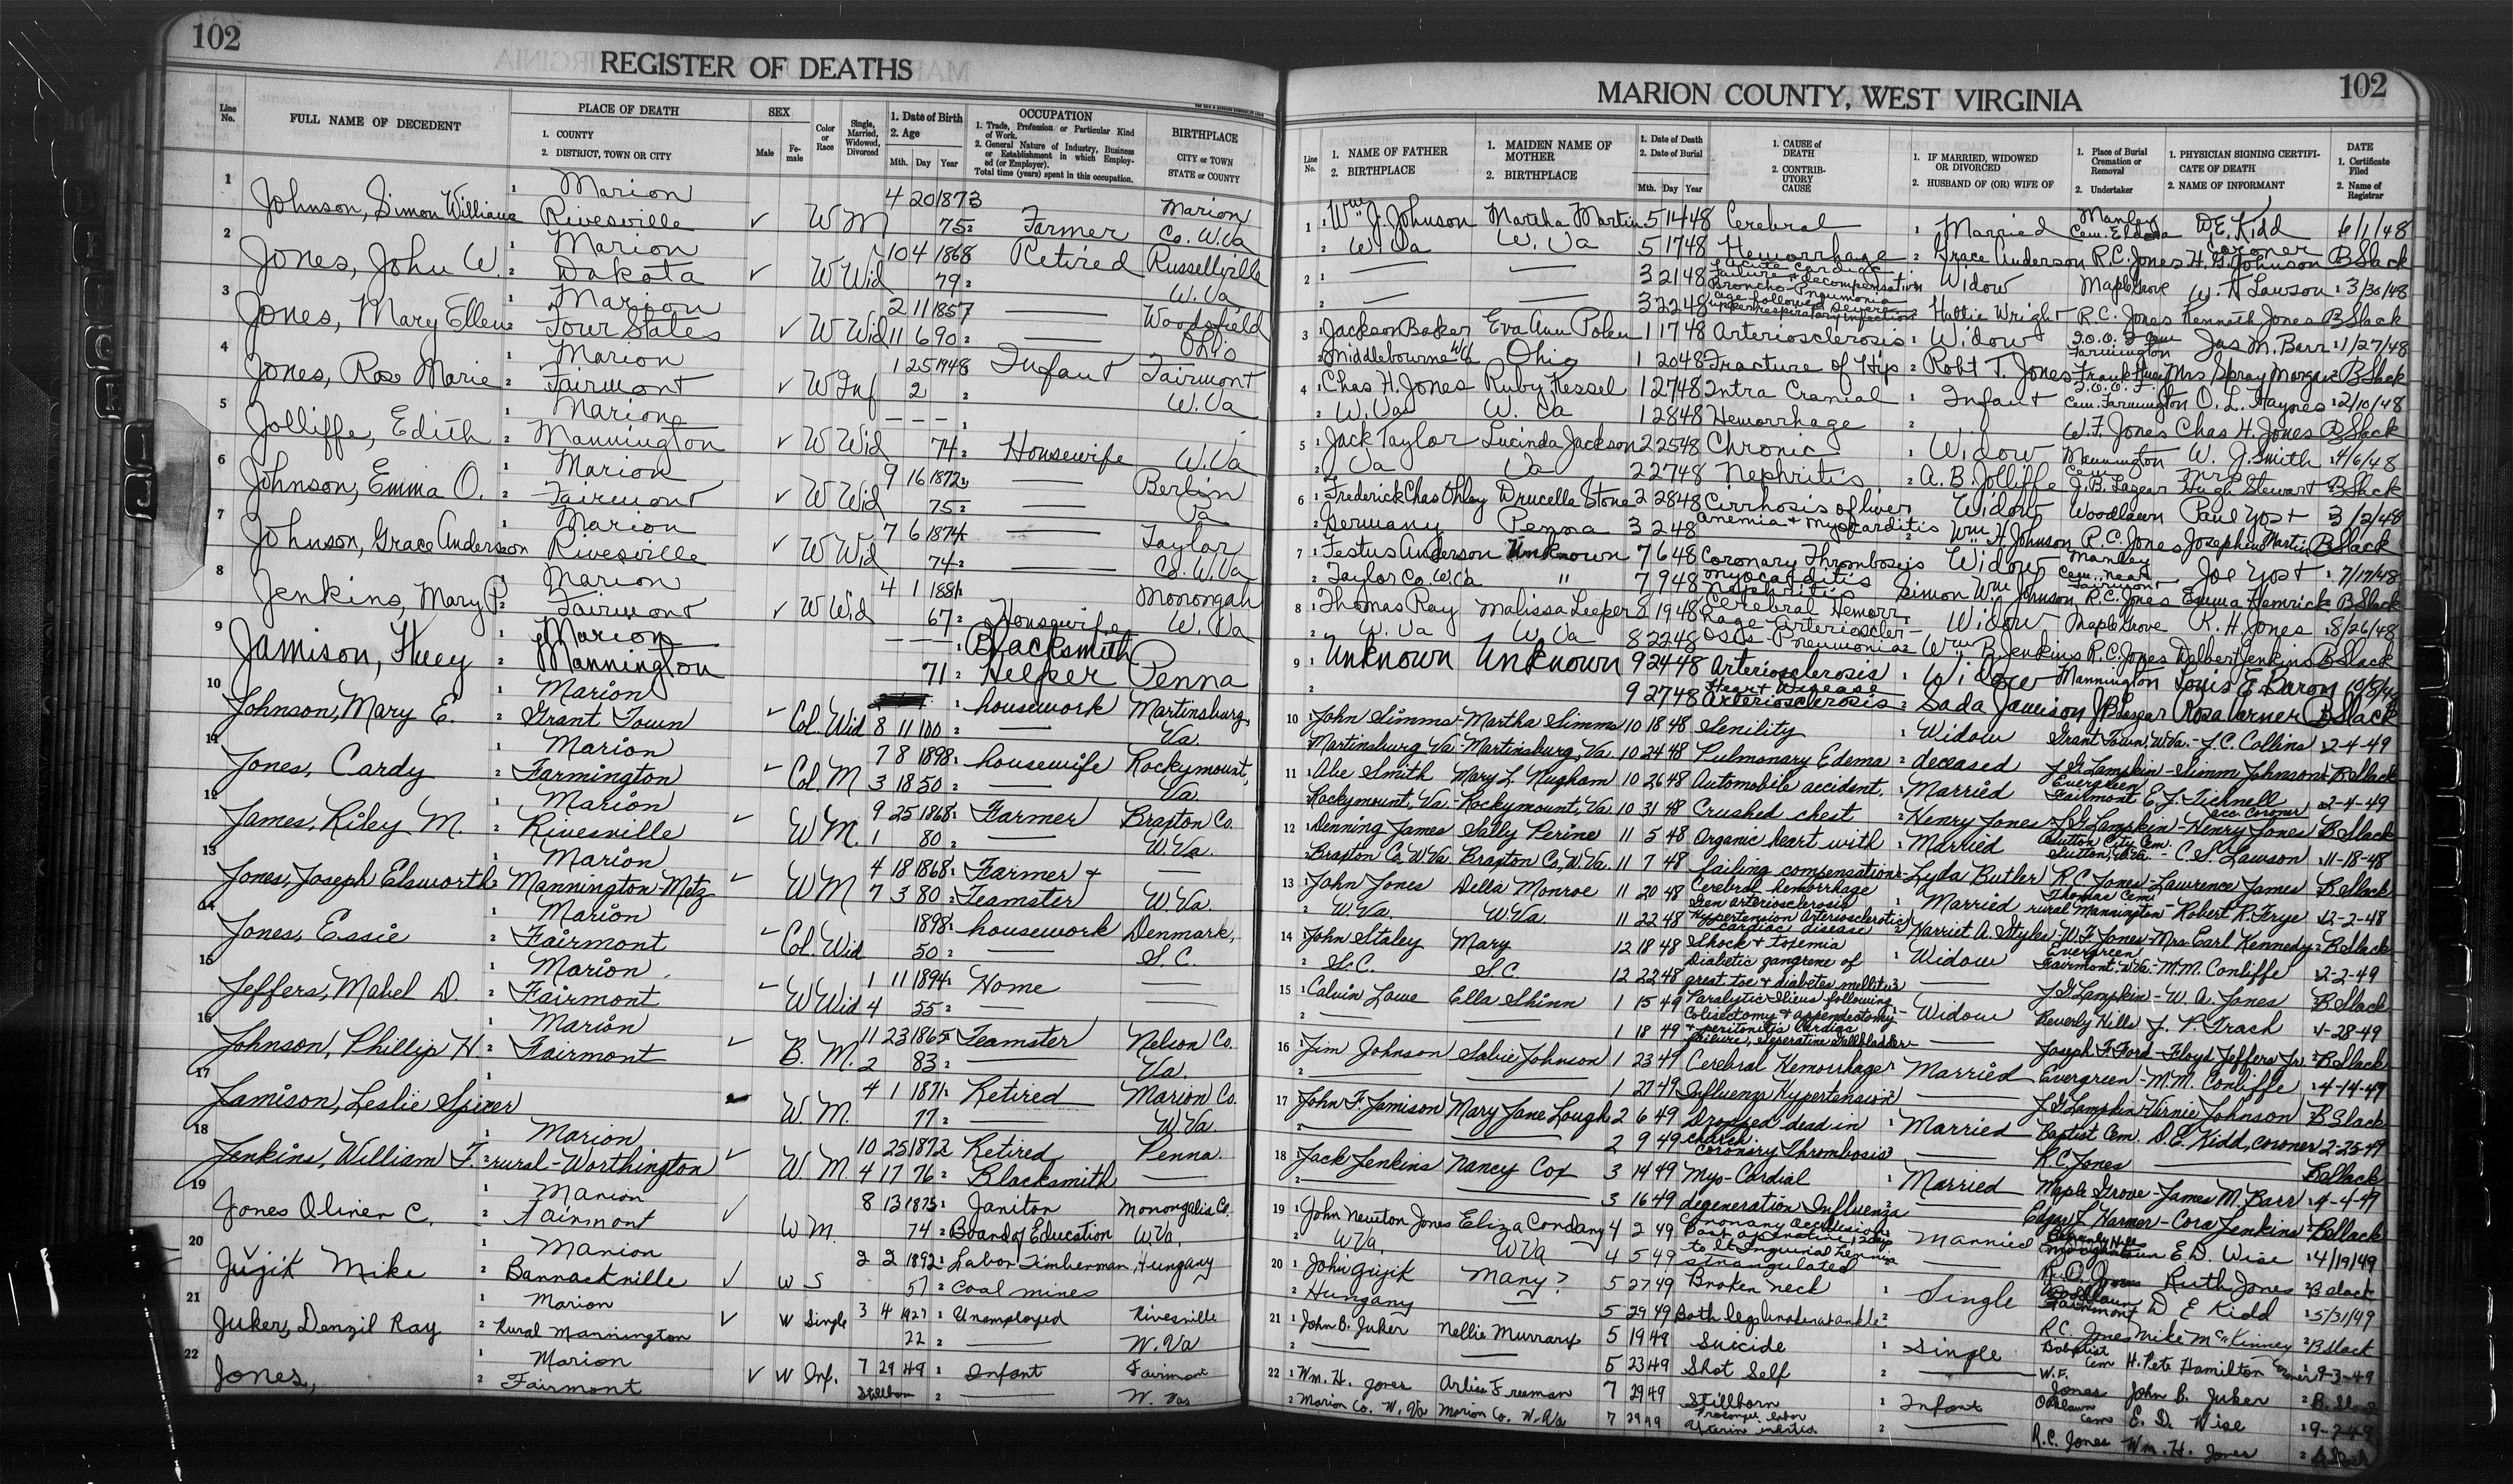 102
REGISTER OF DEATHS
Line No.
FULL NAME OF DECEDENT
PLACE OF DEATH
1. COUNTY
2. DISTRICT, TOWN OR CITY
SEX
Male
Female
Color or Race
Single, Married, Widowed, Divorced
1. Date of Birth
2. Age
Mth. Day Year
OCCUPATION
1. Trade, Profession or Particular Kind of Work.
2. General Nature of Industry, Business or Establishment in which Employed (or Employer).
Total time (years) spent in this occupation.
BIRTHPLACE
CITY or TOWN
STATE or COUNTY
1 Johnson, Simon William 1 Marion 4 20 1873 Marion
2 Rivesville ✓ W M 75 2 Farmer Co. W. Va
2 Jones, John W. 1 Marion 10 4 1868 Retired Russellville
2 Dakota ✓ W Wid 79 2 W. Va
3 Jones, Mary Ellen 1 Marion 2 11 1857 Woodsfield
2 Four States ✓ W Wid 11 6 90 2 Ohio
4 Jones, Rose Marie 1 Marion 1 25 1948 Infant Fairmont
2 Fairmont ✓ W Inf 2 2 W. Va
5 Jolliffe, Edith 1 Marion — — — 1
2 Mannington ✓ W Wid 74 2 Housewife W. Va
6 Johnson, Emma O. 1 Marion 9 16 1872 Berlin
2 Fairmont ✓ W Wid 75 2 Pa
7 Johnson, Grace Anderson 1 Marion 7 6 1874 Taylor
2 Rivesville ✓ W Wid 74 2 Co. W. Va
8 Jenkins, Mary P. 1 Marion 4 1 1881 Monongah
2 Fairmont ✓ W Wid 67 2 Housewife W. Va
9 Jamison, Huey 1 Marion — — — 1 Blacksmith
2 Mannington 71 2 Helper Penna
10 Johnson, Mary E. 1 Marion 1 housework Martinsburg,
2 Grant Town ✓ Col. Wid 8 11 100 2 Va.
11 Jones, Cardy 1 Marion 7 8 1898 1 housewife Rockymount,
2 Farmington ✓ Col. M 3 18 50 2 Va.
12 James, Riley M. 1 Marion 9 25 1868 1 Farmer Braxton Co.
2 Rivesville ✓ W M. 1 80 2 W. Va.
13 Jones, Joseph Elsworth 1 Marion 4 18 1868 1 Farmer +
2 Mannington-Metz ✓ W M 7 3 80 2 Teamster W. Va.
14 Jones, Essie 1 Marion 1898 1 housework Denmark,
2 Fairmont ✓ Col. Wid 50 2 S. C.
15 Jeffers, Mabel D. 1 Marion 1 11 1894 1 Home
2 Fairmont ✓ W Wid 4 55 2
16 Johnson, Phillip H. 1 Marion 11 23 1865 Teamster Nelson Co.
2 Fairmont ✓ B. M. 2 83 2 Va.
17 Jamison, Leslie Spicer 1 4 1 1871 1 Retired Marion Co.
W. M. 77 2 W. Va.
18 Jenkins, William T. 1 Marion 10 25 1872 Retired Penna.
2 rural-Worthington ✓ W. M. 4 17 76 2 Blacksmith
19 Jones Oliver C. 1 Marion 8 13 1875 1 Janitor Monongalia Co.
2 Fairmont ✓ W M. 74 2 Board of Education W. Va.
20 Jujik Mike 1 Marion 2 2 1892 1 Labor Timberman Hungary
2 Bannackville ✓ W S 57 2 Coal mines
21 Juker, Denzil Ray 1 Marion 3 4 1927 1 Unemployed Rivesville
2 Rural Mannington ✓ W Single 22 2 W. Va
22 Jones, 1 Marion 7 29 49 1 Infant Fairmont
2 Fairmont ✓ W Inf. Stillborn 2 W. Va
MARION COUNTY, WEST VIRGINIA
102
Line No.
1. NAME OF FATHER
2. BIRTHPLACE
1. MAIDEN NAME OF MOTHER
2. BIRTHPLACE
1. Date of Death
2. Date of Burial
Mth. Day Year
1. CAUSE of DEATH
2. CONTRIBUTORY CAUSE
1. IF MARRIED, WIDOWED OR DIVORCED
2. HUSBAND OF (OR) WIFE OF
1. Place of Burial Cremation or Removal
2. Undertaker
1. PHYSICIAN SIGNING CERTIFICATE OF DEATH
2. NAME OF INFORMANT
DATE
1. Certificate Filed
2. Name of Registrar
1 1 Wm J. Johnson Martha Martin 5 14 48 Cerebral 1 Married Manley Cem. Eldora D.E. Kidd Coroner 6/1/48
2 W. Va W. Va 5 17 48 Hemorrhage 2 Grace Anderson R.C. Jones H. G. Johnson B Slack
2 1 — — 3 21 48 Acute Cardiac Failure + Decompensation Widow Maple Grove W. H Lawson 1 3/30/48
2 — — 3 22 48 Broncho-Pneumonia age followed severe upper respiratory infection 2 Hattie Wright R.C. Jones Kenneth Jones B Slack
3 1 Jackson Baker Eva Ann Polen 1 17 48 Arteriosclerosis 1 Widow I.O.O.F Cem Farmington Jas M. Barr 1/27/48
2 Middlebourne W Va Ohio 1 20 48 Fracture of Hip 2 Robt T. Jones Mrs Spray Morgan B Slack
4 1 Chas H. Jones Ruby Hessel 1 27 48 Intra Cranial 1 Infant I.O.O.F. Cem. Farmington O. L. Haynes 1 2/10/48
2 W. Va W. Va 1 28 48 Hemorrhage 2 W. F. Jones Chas H. Jones B Slack
5 1 Jack Taylor Lucinda Jackson 2 25 48 Chronic 1 Widow Mannington Cem W. J. Smith 4/6/48
2 Va Va 2 27 48 Nephritis 2 A. B. Jolliffe J. B. Lazear Mrs Hugh Stewart B Slack
6 1 Frederick Chas Ohley Drucella Stone 2 28 48 Cirrhosis of liver Widow Woodlawn Paul Yost 3/2/48
2 Germany Penna 3 2 48 anemia + myocarditis 2 Wm H Johnson R.C. Jones Josephine Martin B Slack
7 1 Festus Anderson Unknown 7 6 48 Coronary Thrombosis Widow Manley Cem. near Fairmont Joe Yost 1 7/17/48
2 Taylor Co. W. Va " 7 9 48 Myocarditis Nephritis Simon Wm Johnson R.C. Jones Emma Hemrick B Slack
8 1 Thomas Ray Malissa Leeper 8 19 48 Cerebral Hemorrhage Arterioscler- Widow Maple Grove R. H. Jones 1 8/26/48
2 W. Va W. Va 8 22 48 osis-Pneumonia 2 Wm B. Jenkins R.C. Jones Delbert Jenkins B Slack
9 1 Unknown Unknown 9 24 48 Arteriosclerosis 1 Widow Mannington Louis E. Baron 10/8/48
2 9 27 48 Heart Disease Arteriosclerosis 2 Sada Jamison J B Lazear Rosa Varner B Slack
10 1 John Simms - Martha Simms 10 18 48 Senility 1 Widow Grant Town, W. Va. - J.C. Collins 1 2-4-49
Martinsburg Va. - Martinsburg, Va. 10 24 48 Pulmonary Edema 2 deceased J G Lampkin - Simm Johnson B Slack
11 1 Abe Smith Mary L. Nugham 10 26 48 Automobile accident. 1 Married Evergreen Fairmont E. J. Ticknell acc. Coroner 2-4-49
2 Rockymount, Va. - Rockymount, Va. 10 31 48 Crushed chest 2 Henry Jones J G Lampkin - Henry Jones B Slack
12 1 Denning James Sally Perine 11 5 48 Organic heart with 1 Married Sutton City Cem. Sutton, W. Va. - C. S. Lawson 1 11-18-48
2 Braxton Co, W Va Braxton Co, W. Va. 11 7 48 failing compensation 2 Lyda Butler R.C. Jones - Lawrence James B Slack
13 1 John Jones Della Monroe 11 20 48 Cerebral hemorrhage Gen arteriosclerosis 1 Married Thomas Cem. rural Mannington - Robert R. Frye 12-2-48
2 W. Va. W. Va. 11 22 48 Hypertension Arteriosclerotic cardiac disease 2 Harriet A. Styles W. F. Jones - Mrs. Earl Kennedy B Slack
14 1 John Staley Mary 12 18 48 Shock & toxemia 1 Widow Evergreen Fairmont, W. Va. - M.M. Conliffe 1 2-2-49
2 S.C. S C 12 22 48 Diabetic gangrene of great toe & diabetes mellitus J G Lampkin - W. A. Jones B Slack
15 1 Calvin Lowe Ella Shinn 1 15 49 Paralytic Ileus following 1 Widow Beverly Hills J. P. Trash 1-28-49
2 — 1 18 49 & peritonitis Cardiac failure, Joseph F. Ford - Floyd Jeffers Jr. B Slack
16 1 Jim Johnson Sabie Johnson 1 23 49 Cerebral Hemorrhage Married Evergreen - M.M. Conliffe 1 4-14-49
2 — — 1 27 49 Influenza Hypertension J G Lampkin Virnie Johnson B Slack
17 1 John F. Jamison Mary Jane Lough 2 6 49 Dropped dead in 1 Married Baptist Cem. D. E. Kidd, coroner 2-25-49
2 — — 2 9 49 church. Coronary Thrombosis R.C. Jones B Slack
18 1 Jack Jenkins Nancy Cox 3 14 49 Myo-Cardial Married Maple Grove - James M. Barr 1 4-4-49
2 — — 3 16 49 degeneration Influenza Edgar L Harmer - Cora Jenkins B Slack
19 1 John Newton Jones Eliza Condany 4 2 49 Coronary Occlusion Post operative Married Beverly Hills Morgantown E. D. Wise 1 4/19/49
2 W Va. W Va 4 5 49 to lt Inguinal hernia strangulated R. C. Jones Ruth Jones B slack
20 1 John Gujik Mary? 5 27 49 Broken neck 1 Single Woodlawn Fairmont D E Kidd 1 5/31/49
2 Hungary 5 29 49 Both legs broken at ankle 2 R.C. Jones Mike McKinney 2 B Slack
21 1 John B. Juker Nellie Murrary 5 19 49 Suicide 1 Single Baptist Cem H. Pete Hamilton 1 9-3-49
2 — 5 23 49 Shot Self 2 W. F. Jones John B. Juker 2 B. Slack
22 1 Wm. H. Jones Arlie Freeman 7 29 49 Stillborn 1 Infant Cem E. D. Wise 1 9-7-49
2 Marion Co. W. Va Marion Co. W. Va 7 29 49 Prolonged labor Uterine inertia 2 R.C. Jones Wm. H. Jones 2 B Slack